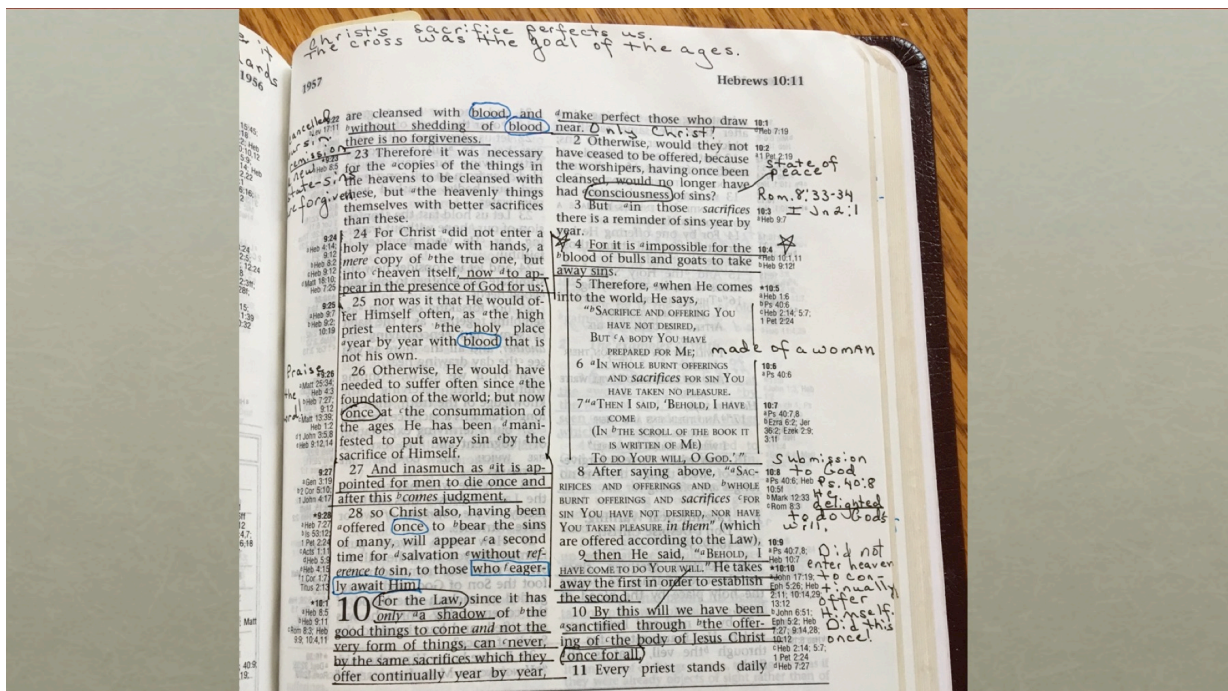 Christ's sacrifice perfects us.
The cross was the goal of the ages.
1956
1957
Hebrews 10:11
are cleansed with blood, and
b without shedding of blood
there is no forgiveness.
23 Therefore it was necessary
for the a copies of the things in
the heavens to be cleansed with
these, but a the heavenly things
themselves with better sacrifices
than these.
24 For Christ a did not enter a
holy place made with hands, a
mere copy of b the true one, but
into c heaven itself, now d to ap-
pear in the presence of God for us;
25 nor was it that He would of-
fer Himself often, as a the high
priest enters b the holy place
a year by year with blood that is
not his own.
26 Otherwise, He would have
needed to suffer often since a the
foundation of the world; but now
once at c the consummation of
the ages He has been d mani-
fested to put away sin e by the
sacrifice of Himself.
27 And inasmuch as a it is ap-
pointed for men to die once and
after this b comes judgment,
28 so Christ also, having been
a offered once to b bear the sins
of many, will appear c a second
time for d salvation e without ref-
erence to sin, to those who f eager-
ly await Him.
10 For the Law, since it has
only a a shadow of b the
good things to come and not the
very form of things, can c never,
by the same sacrifices which they
offer continually year by year,
Praise
the
9:24
9:25
9:26
9:27
9:28
10:1
a make perfect those who draw
near. Only Christ!
2 Otherwise, would they not
have ceased to be offered, because
the worshipers, having once been
cleansed, would no longer have
had a consciousness of sins?
3 But a in those sacrifices
there is a reminder of sins year by
year.
4 For it is a impossible for the
b blood of bulls and goats to take
away sins.
5 Therefore, a when He comes
into the world, He says,
"b SACRIFICE AND OFFERING YOU
HAVE NOT DESIRED,
BUT c A BODY YOU HAVE
PREPARED FOR ME; made of a woman
6 "a IN WHOLE BURNT OFFERINGS
AND sacrifices FOR SIN YOU
HAVE TAKEN NO PLEASURE.
7 "a THEN I SAID, 'BEHOLD, I HAVE
COME
(IN b THE SCROLL OF THE BOOK IT
IS WRITTEN OF ME)
TO DO YOUR WILL, O GOD.'"
8 After saying above, "a SAC-
RIFICES AND OFFERINGS AND b WHOLE
BURNT OFFERINGS AND sacrifices c FOR
SIN YOU HAVE NOT DESIRED, NOR HAVE
YOU TAKEN PLEASURE in them" (which
are offered according to the Law),
9 then He said, "a BEHOLD, I
HAVE COME TO DO YOUR WILL." He takes
away the first in order to establish
the second.
10 By this will we have been
a sanctified through b the offer-
ing of c the body of Jesus Christ
d once for all.
11 Every priest stands daily
10:1
a Heb 7:19
10:2
a 1 Pet 2:19
state of
peace
Rom. 8:33-34
I Jn 2:1
10:3
a Heb 9:7
10:4
a Heb 10:1,11
b Heb 9:12f
10:5
a Heb 1:6
b Ps 40:6
c Heb 2:14; 5:7;
1 Pet 2:24
10:6
a Ps 40:6
10:7
a Ps 40:7,8
b Ezra 6:2; Jer
36:2; Ezek 2:9;
3:1f
Submission
to God
Ps. 40:8
He
delighted
to do Gods
will.
10:8
a Ps 40:6; Heb
10:5f
b Mark 12:33
c Rom 8:3
10:9
a Ps 40:7,8
10:10
a John 17:19;
Eph 5:26; Heb
2:11; 10:14,29;
13:12
b John 6:51;
Eph 5:2; Heb
7:27; 9:14,28;
10:12
c Heb 2:14; 5:7;
1 Pet 2:24
d Heb 7:27
Did not
enter heaven
to con-
tinually
offer
Himself.
Did this
once!